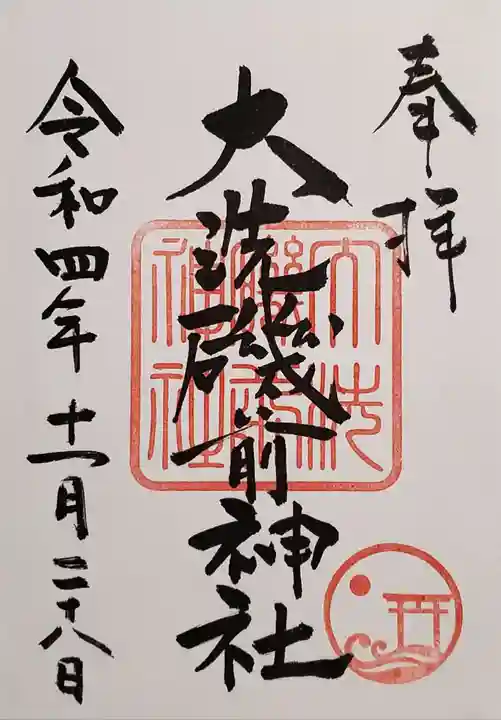 奉拝
大洗磯前神社
大洗磯前神社
令和四年十一月二十八日